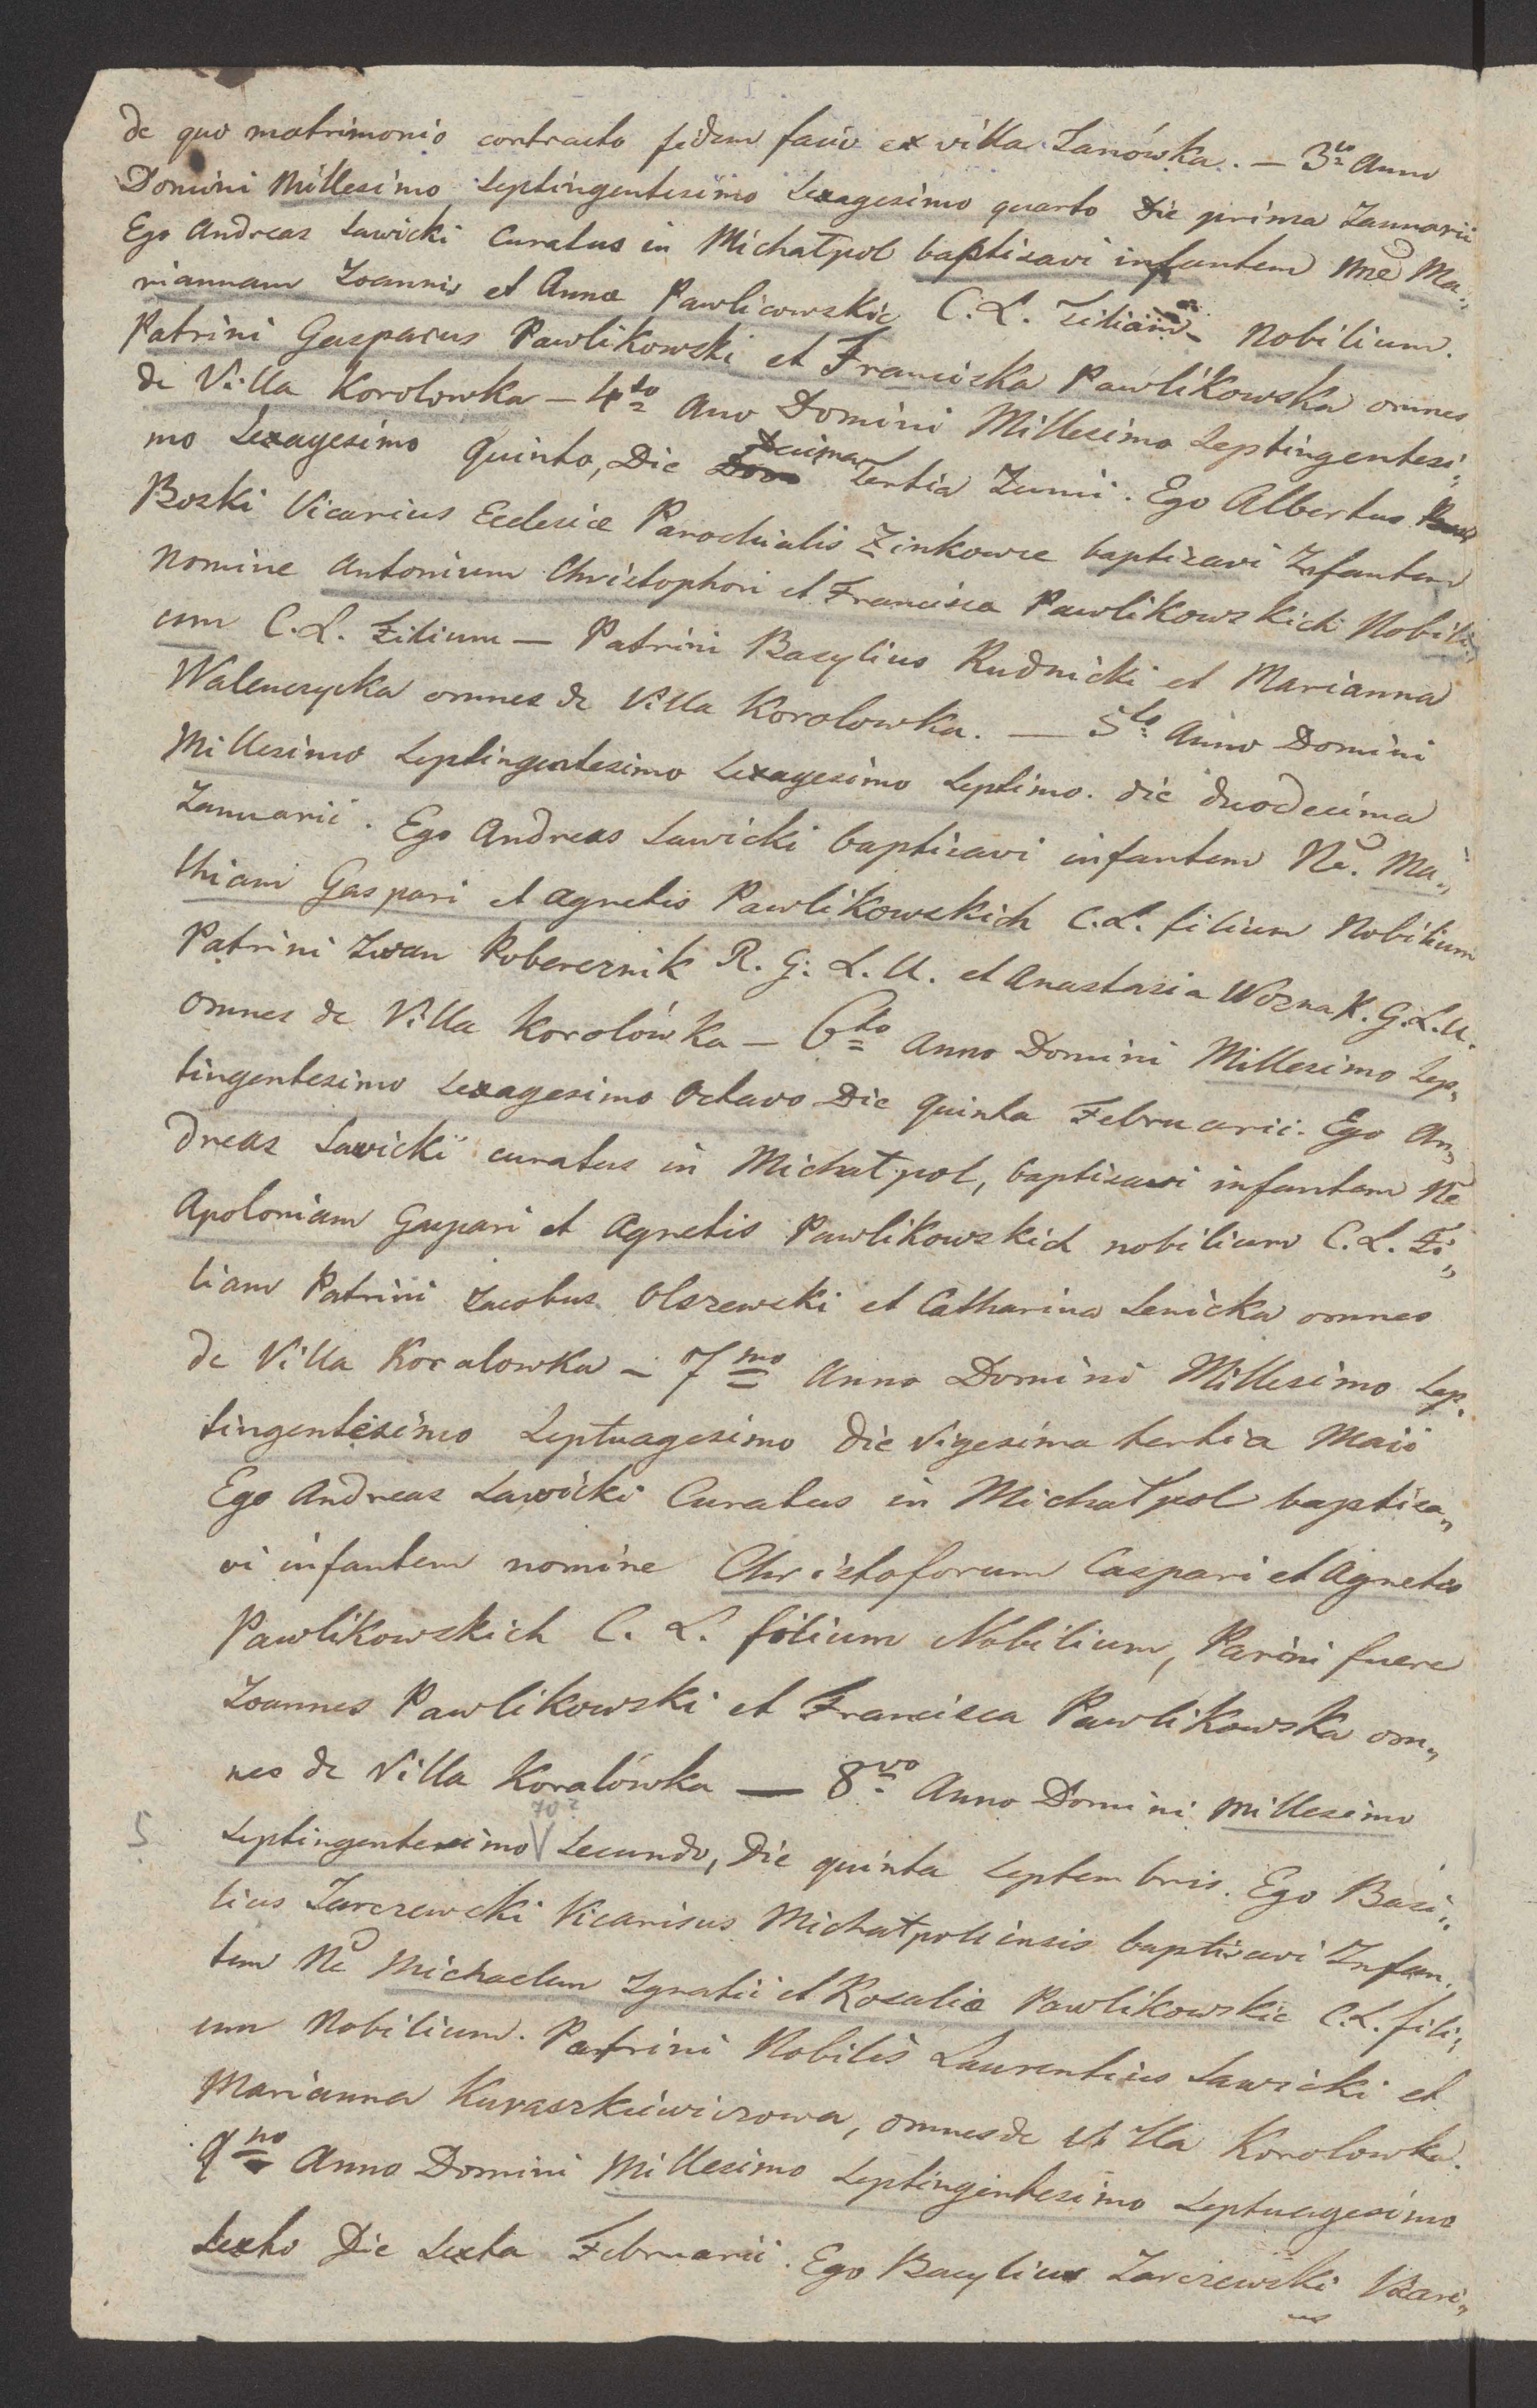 de quo matrimonio contracto fidem facio ex villa Janówka. — 3tio Anno
Domini Millesimo Septingentesimo Sexagesimo quarto Die prima Januarii
Ego Andreas Sawicki Curatus in Michałpol baptisavi infantem Nne Ma„
riannam Joannis et Annæ Pawlicowskie C. L. Filiam - Nobilium.
Patrini Gasparus Pawlikowski et Franciska Pawlikowska omnes
de Villa Korolowka — 4to Ano Domini Millesimo Septingentesi„
mo Sexagesimo Quinto, Die Decima Tertia Junii. Ego Albertus
Boski Vicarius Ecclesiæ Parochialis Zinkowce baptisavi Infantem
Nomine Antonium Christophori et Francisca Pawlikowskich Nobili„
um C. L. Filium — Patrini Basylius Rudnicki et Marianna
Walenczycka omnes de Villa Korolowka. — 5to Anno Domini
Millesimo Septingentesimo Sexagesimo Septimo. die duodecima
Januarii. Ego Andreas Sawicki baptisavi infantem Ne. Ma„
thiam Gaspari et Agnetis Pawlikowskich C. L. filium Nobilium
Patrini Iwan Poberesnik R. G. L. U. et Anastasia Wozna R. G. L. U.
omnes de Villa Korolówka — 6to Anno Domini Millesimo Sep„
tingentesimo Sexagesimo Octavo Die quinta Februarii. Ego An„
dreas Sawicki curatus in Michałpol, baptisavi infantem Ne
Apoloniam Gaspari et Agnetis Pawlikowskich nobilium C. L. Fi„
liam Patrini Jacobus Olszewski et Catharina Senicka omnes
de Villa Koralowka — 7mo Anno Domini Millesimo Sep„
tingentesimo Septuagesimo Die Vigesima tertia Maii
Ego Andreas Sawicki Curatus in Michałpol baptisa„
vi infantem nomine Christoforum Caspari et Agnetis
Pawlikowskich C. L. filium Nobilium, Parini fuere
Joannes Pawlikowski et Francisca Pawlikowska om„
nes de Villa Koralówka — 8vo Anno Domini Millesimo
70?
5 Septingentesimo V Secundo, Die quinta Septembris. Ego Basi„
lius Jarczewski Vicarisus Michałpoliensis baptisavi Infan„
tem Ne Michaelem Ignatii et Rosaliæ Pawlikowskie C. L. fili„
um Nobilium. Patrini Nobilis Laurentius Sawicki et
Marianna Kuraszkiewiczowa, omnes de Villa Korolowka.
9no Anno Domini Millesimo Septingentesimo Septuagesimo
Sexto Die Sexta Februarii. Ego Basylius Jarczewski Vicari„
us